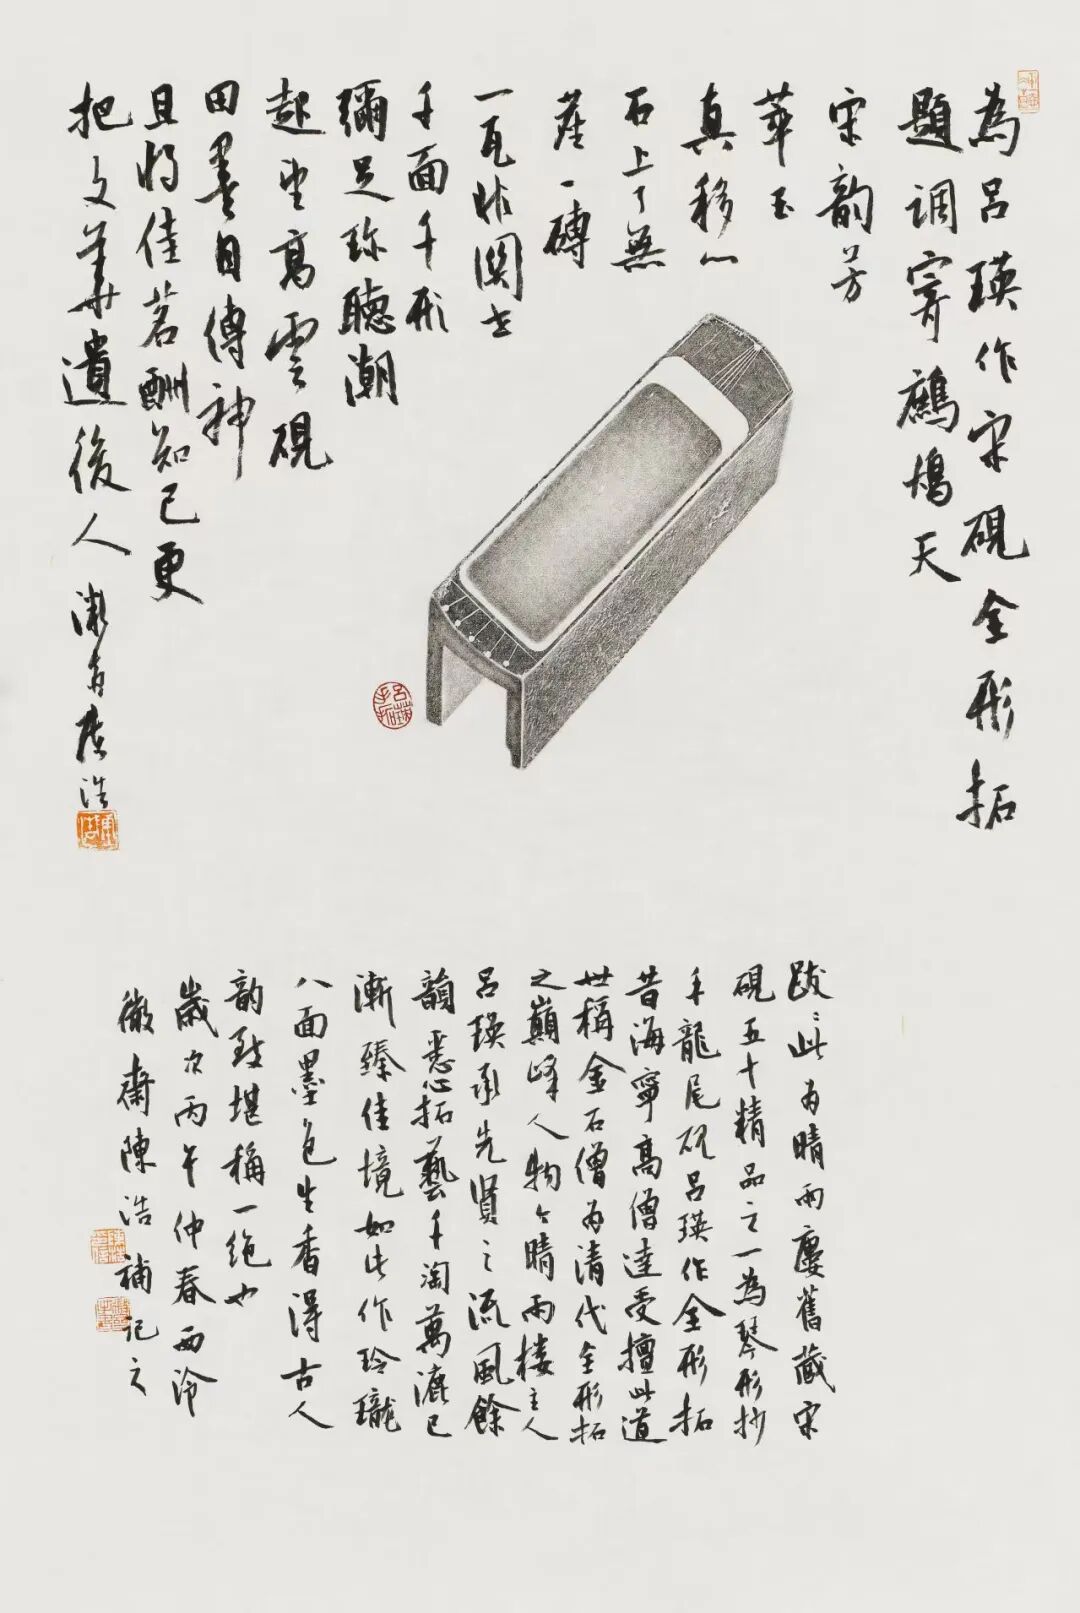 為呂瑛作宋硯全形拓
題調寄鷓鴣天
宋韵芳
華玉
真移心
石上了無
差一磚
一瓦皆關世
千面千形
彌足珍聽潮
起坐高雲硯
田墨目傳神
且將佳茗酬知己更
把文華遺後人
陳浩
跋此為晴雨廔舊藏宋
硯五十精品之一為琴形抄
手龍尾硯呂瑛作全形拓
昔海寧高僧達受擅此道
世稱金石僧為清代全形拓
之巔峰人物今晴雨楼主人
呂瑛承先賢之流風餘
韻悉心拓藝千淘萬漉已
漸臻佳境如此作玲瓏
八面墨色生香得古人
韵致堪稱一绝也
歲次丙午仲春西泠
徽齋陳浩補記之
呂瑛手拓